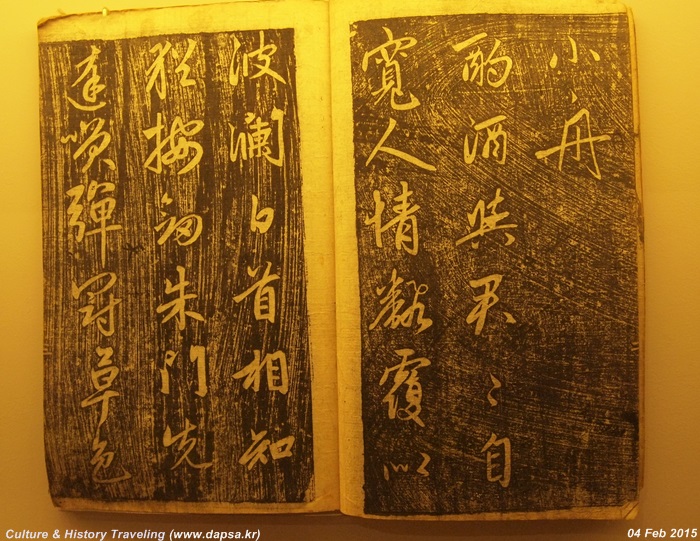 小舟
酌酒與君〻自
寬人情翻覆似
波瀾白首相知
猶按劔朱門先
達咲彈冠草色
Culture & History Traveling (www.dapsa.kr)
04 Feb 2015